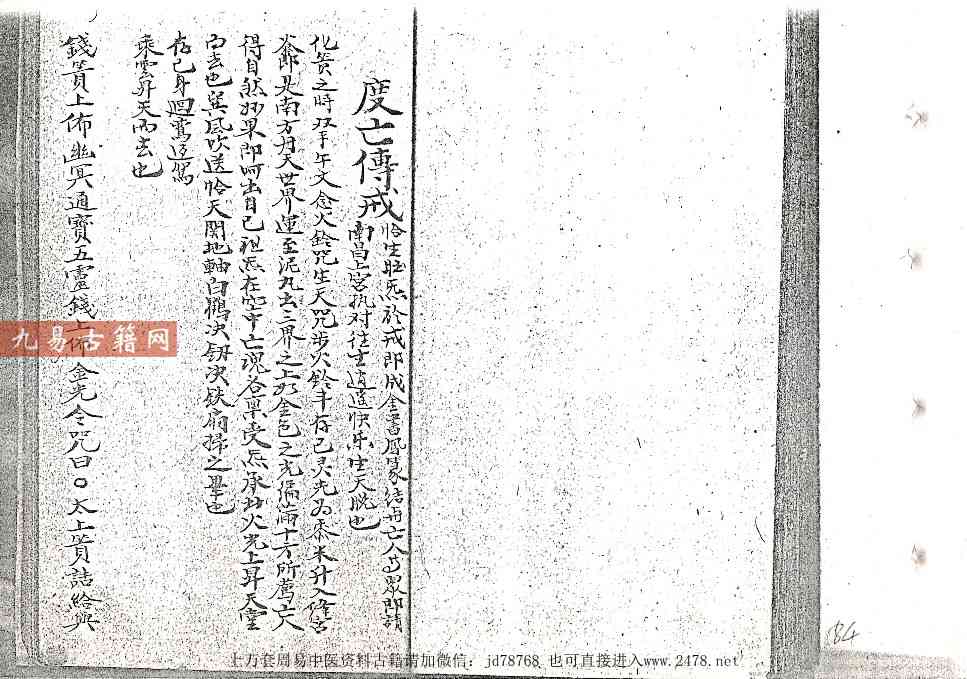 度亡傳戒
恰生旺炁於戒即成金書鳳篆給與亡人等眾即請
南昌上宮执对往生逍遥快乐生天脫也
化箓之時双手午文念火鈴咒生天咒步火鈴斗存已灵光为黍米升入絳宮
炎即是南方丹天世界運至泥丸去三界之上欢金色之光偏滿十方所薦亡人
得自然妙果即呵出自己祖炁在空中亡魂各禀受炁承此火光上昇天堂
而去也巽風吹送恰天関地軸白鶴决劒决鉄扇掃之畢也
存已身迴鸞返駕
乘雲昇天而去也
錢箓上佈幽冥通寶五靈錢上佈金光令咒曰○太上箓誥給與
九易古籍网
84
上万套周易中医资料古籍请加微信: jd78768 也可直接进入www.2478.net